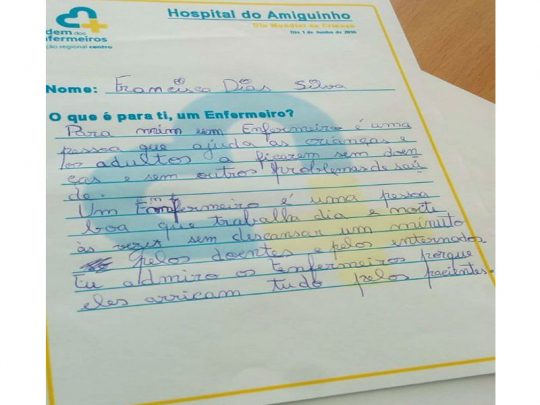 Hospital do Amiguinho
Dia Mundial da Criança
Dia 1 de Junho de 2016
dem dos
nfermeiros
ção regional centro
Nome: Francisca Dias Silva
O que é para ti, um Enfermeiro?
Para mim um Enfermeiro é uma
pessoa que ajuda as crianças e
os adultos a ficarem sem doen
ças e sem outros problemas de saú
de.
Um Enfermeiro é uma pessoa
boa que trabalha dia e noite
às vezes sem descansar um minuto
pelos doentes e pelos internados
Eu admiro os Enfermeiros porque
eles arricam tudo pelos pacientes.